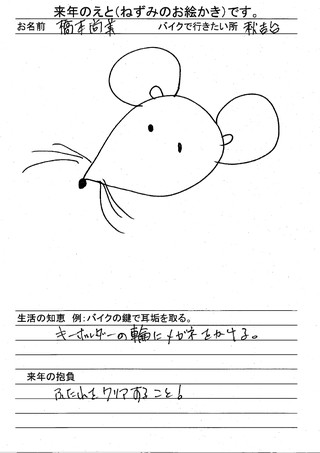 来年のえと(ねずみのお絵かき)です。
お名前 橋本尚業 バイクで行きたい所 秋吉台
生活の知恵 例:バイクの鍵で耳垢を取る。
キーホルダーの輪にメガネをかける。
来年の抱負
ふた山をクリアすること!